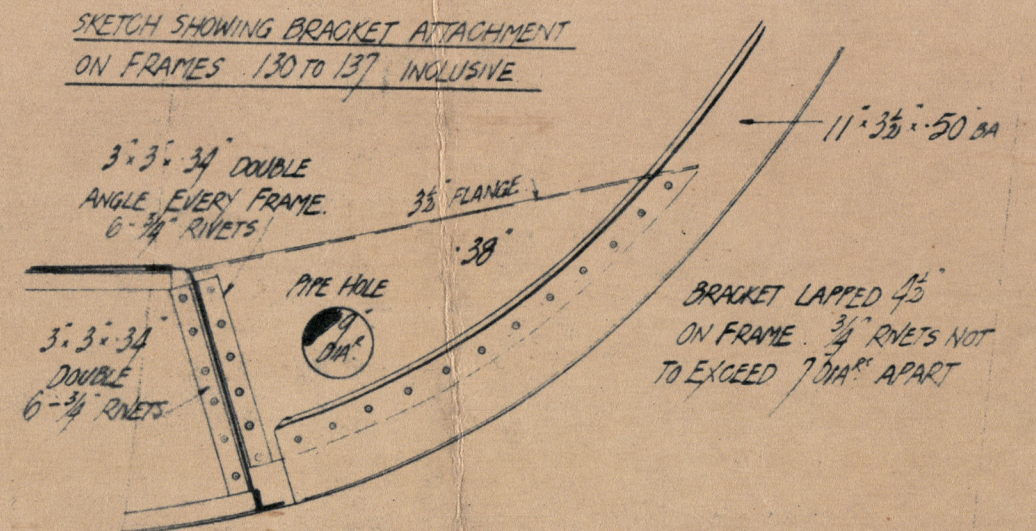 SKETCH SHOWING BRACKET ATTACHMENT
ON FRAMES 130 TO 137 INCLUSIVE
11" × 3½" × .50" BA
3" × 3" × .34" DOUBLE
ANGLE EVERY FRAME.
6 - ¾" RIVETS
3½" FLANGE
.38"
PIPE HOLE
9"
DIAR.
3" × 3" × .34"
DOUBLE
6 - ¾" RIVETS
BRACKET LAPPED 4½"
ON FRAME. ¾" RIVETS NOT
TO EXCEED 7 DIARS APART